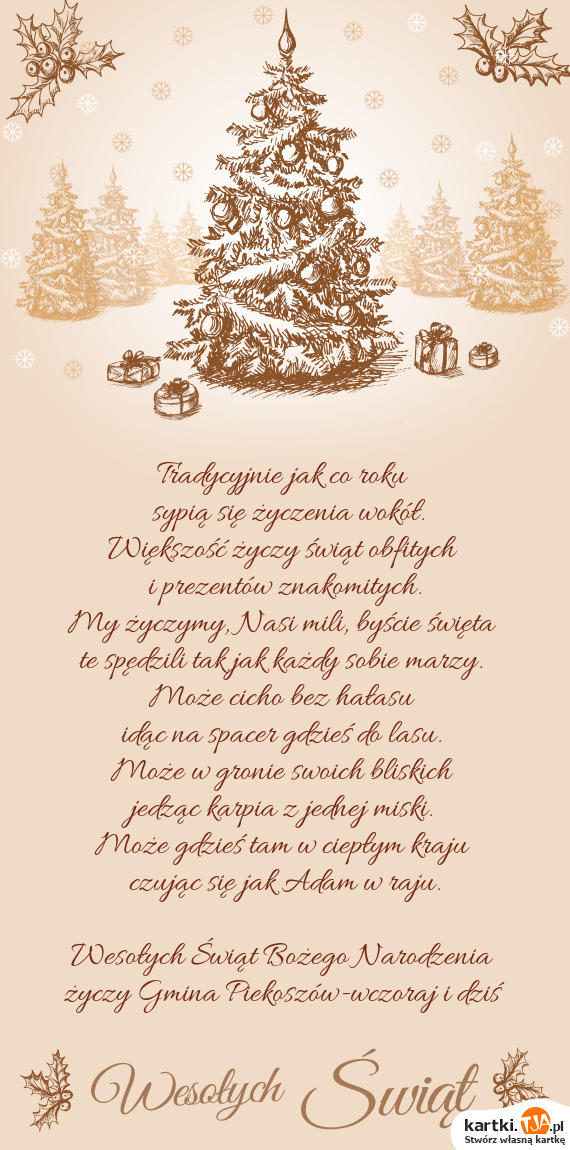 Tradycyjnie jak co roku
sypią się życzenia wokół.
Większość życzy świąt obfitych
i prezentów znakomitych.
My życzymy, Nasi mili, byście święta
te spędzili tak jak każdy sobie marzy.
Może cicho bez hałasu
idąc na spacer gdzieś do lasu.
Może w gronie swoich bliskich
jedząc karpia z jednej miski.
Może gdzieś tam w ciepłym kraju
czując się jak Adam w raju.
Wesołych Świąt Bożego Narodzenia
życzy Gmina Piekoszów-wczoraj i dziś
Wesołych Świąt
kartki.TJA.pl
Stwórz własną kartkę